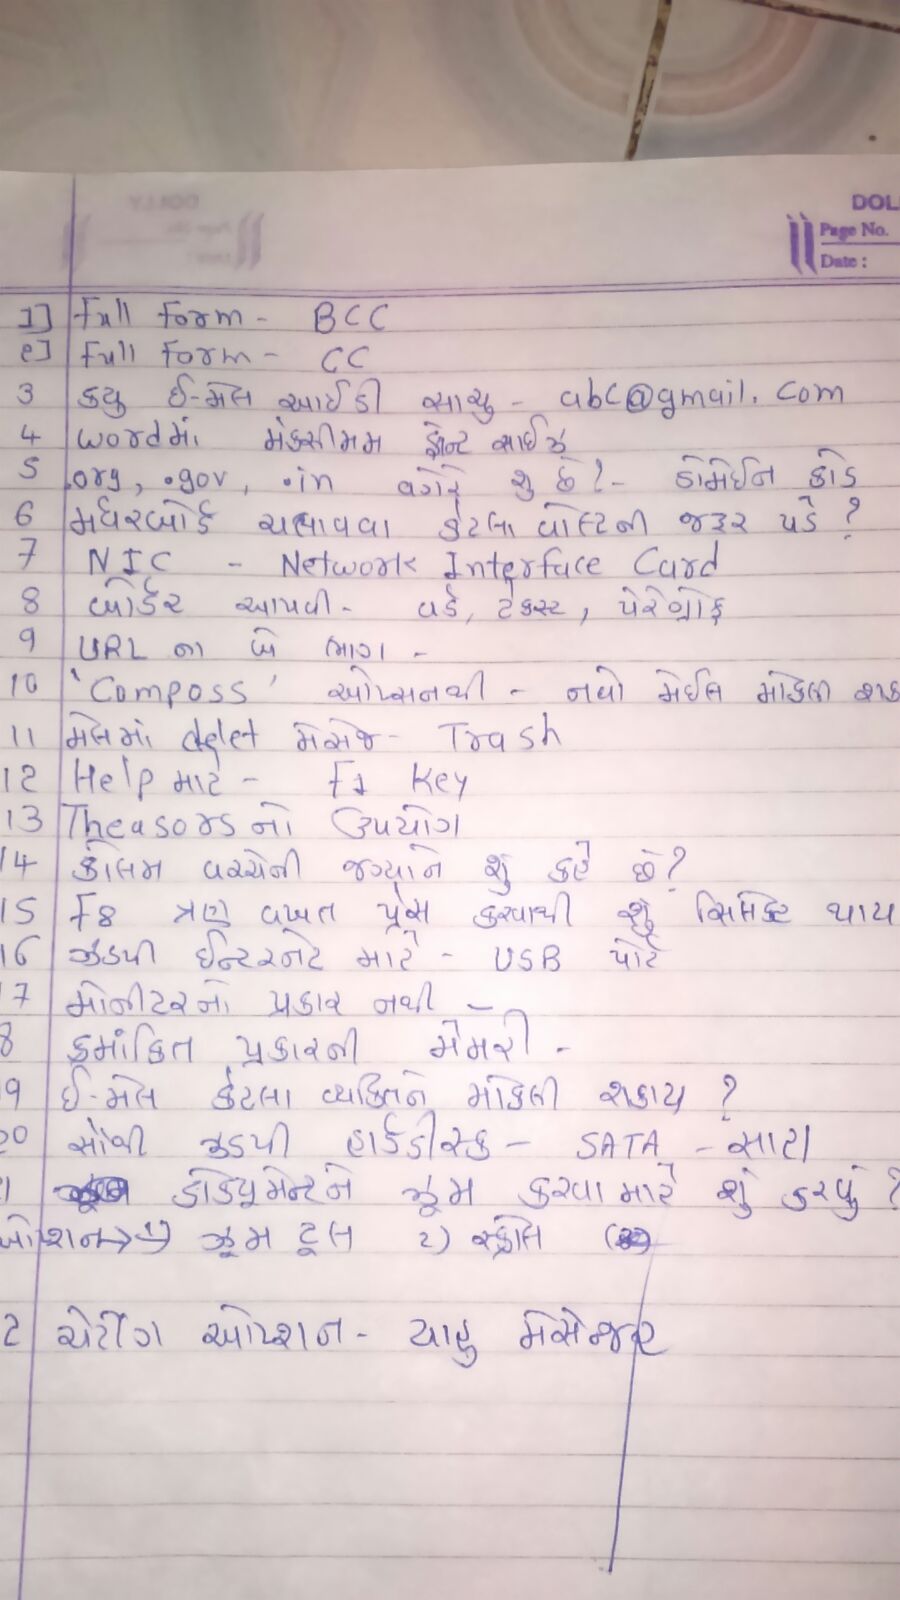 DOLLY
DOL
Page No.
Date :
1] Full Form - BCC
2] Full Form - CC
3 કયુ ઈ-મેલ આઈડી સાચુ - abc@gmail.com
4 wordમાં મેક્સીમમ ફોન્ટ સાઈઝ
5 .org, .gov, .in વગેરે શુ છે? - ડોમેઈન કોડ
6 મધરબોર્ડ ચલાવવા કેટલા વોલ્ટની જરૂર પડે ?
7 NIC - Network Interface Card
8 બોર્ડર આપવી - વર્ડ, ટેક્સ્ટ, પેરેગ્રાફ
9 URL ના બે ભાગ -
10 'Composs' ઓપ્સનથી - નવો મેઈલ મોકલી શક
11 મેલમાં delet મેસેજ - Trash
12 Help માટે - F1 Key
13 Theasorsનો ઉપયોગ
14 કોલમ વચ્ચેની જગ્યાને શું કહે છે?
15 F8 ત્રણ વખત પ્રેસ કરવાથી શું સિલેક્ટ થાય
16 ઝડપી ઈન્ટરનેટ માટે - USB પોર્ટ
17 મોનીટરનો પ્રકાર નથી -
8 ક્રમાંકિત પ્રકારની મેમરી -
9 ઈ-મેલ કેટલા વ્યક્તિને મોકલી શકાય ?
20 સૌથી ઝડપી હાર્ડડીસ્ક - SATA - સાટા
1 ડોક્યુમેન્ટને ઝૂમ કરવા માટે શું કરવું ?
ઓપ્શન → 1) ઝૂમ ટૂલ 2) સ્ક્રોલ
2 ચેટીંગ ઓપ્શન - યાહુ મેસેન્જર